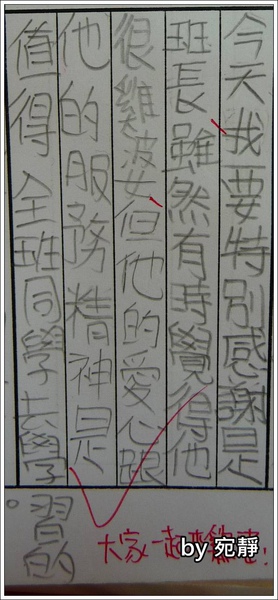 今天我要特別感謝是
班長雖然有時覺得他
很雞婆但他的愛心跟
他的服務精神是
值得全班同學去學
習的。
大家一起來雞婆!
by 宛靜